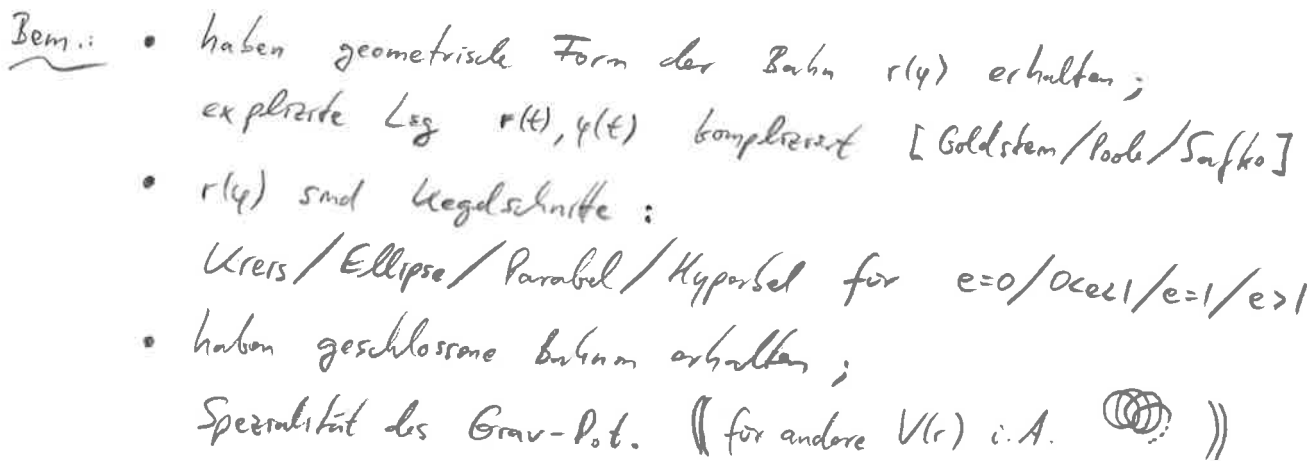 Bem.: • haben geometrische Form der Bahn r(φ) erhalten;
explizite Lsg r(t), φ(t) kompliziert [Goldstein/Poole/Safko]
• r(φ) sind Kegelschnitte:
Kreis/Ellipse/Parabel/Hyperbel für e=0/0<e<1/e=1/e>1
• haben geschlossene Bahnen erhalten;
Spezialität des Grav-Pot. (( für andere V(r) i.A. ))